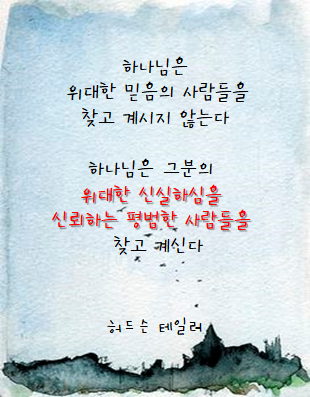 하나님은
위대한 믿음의 사람들을
찾고 계시지 않는다
하나님은 그분의
위대한 신실하심을
신뢰하는 평범한 사람들을
찾고 계신다
허드슨 테일러